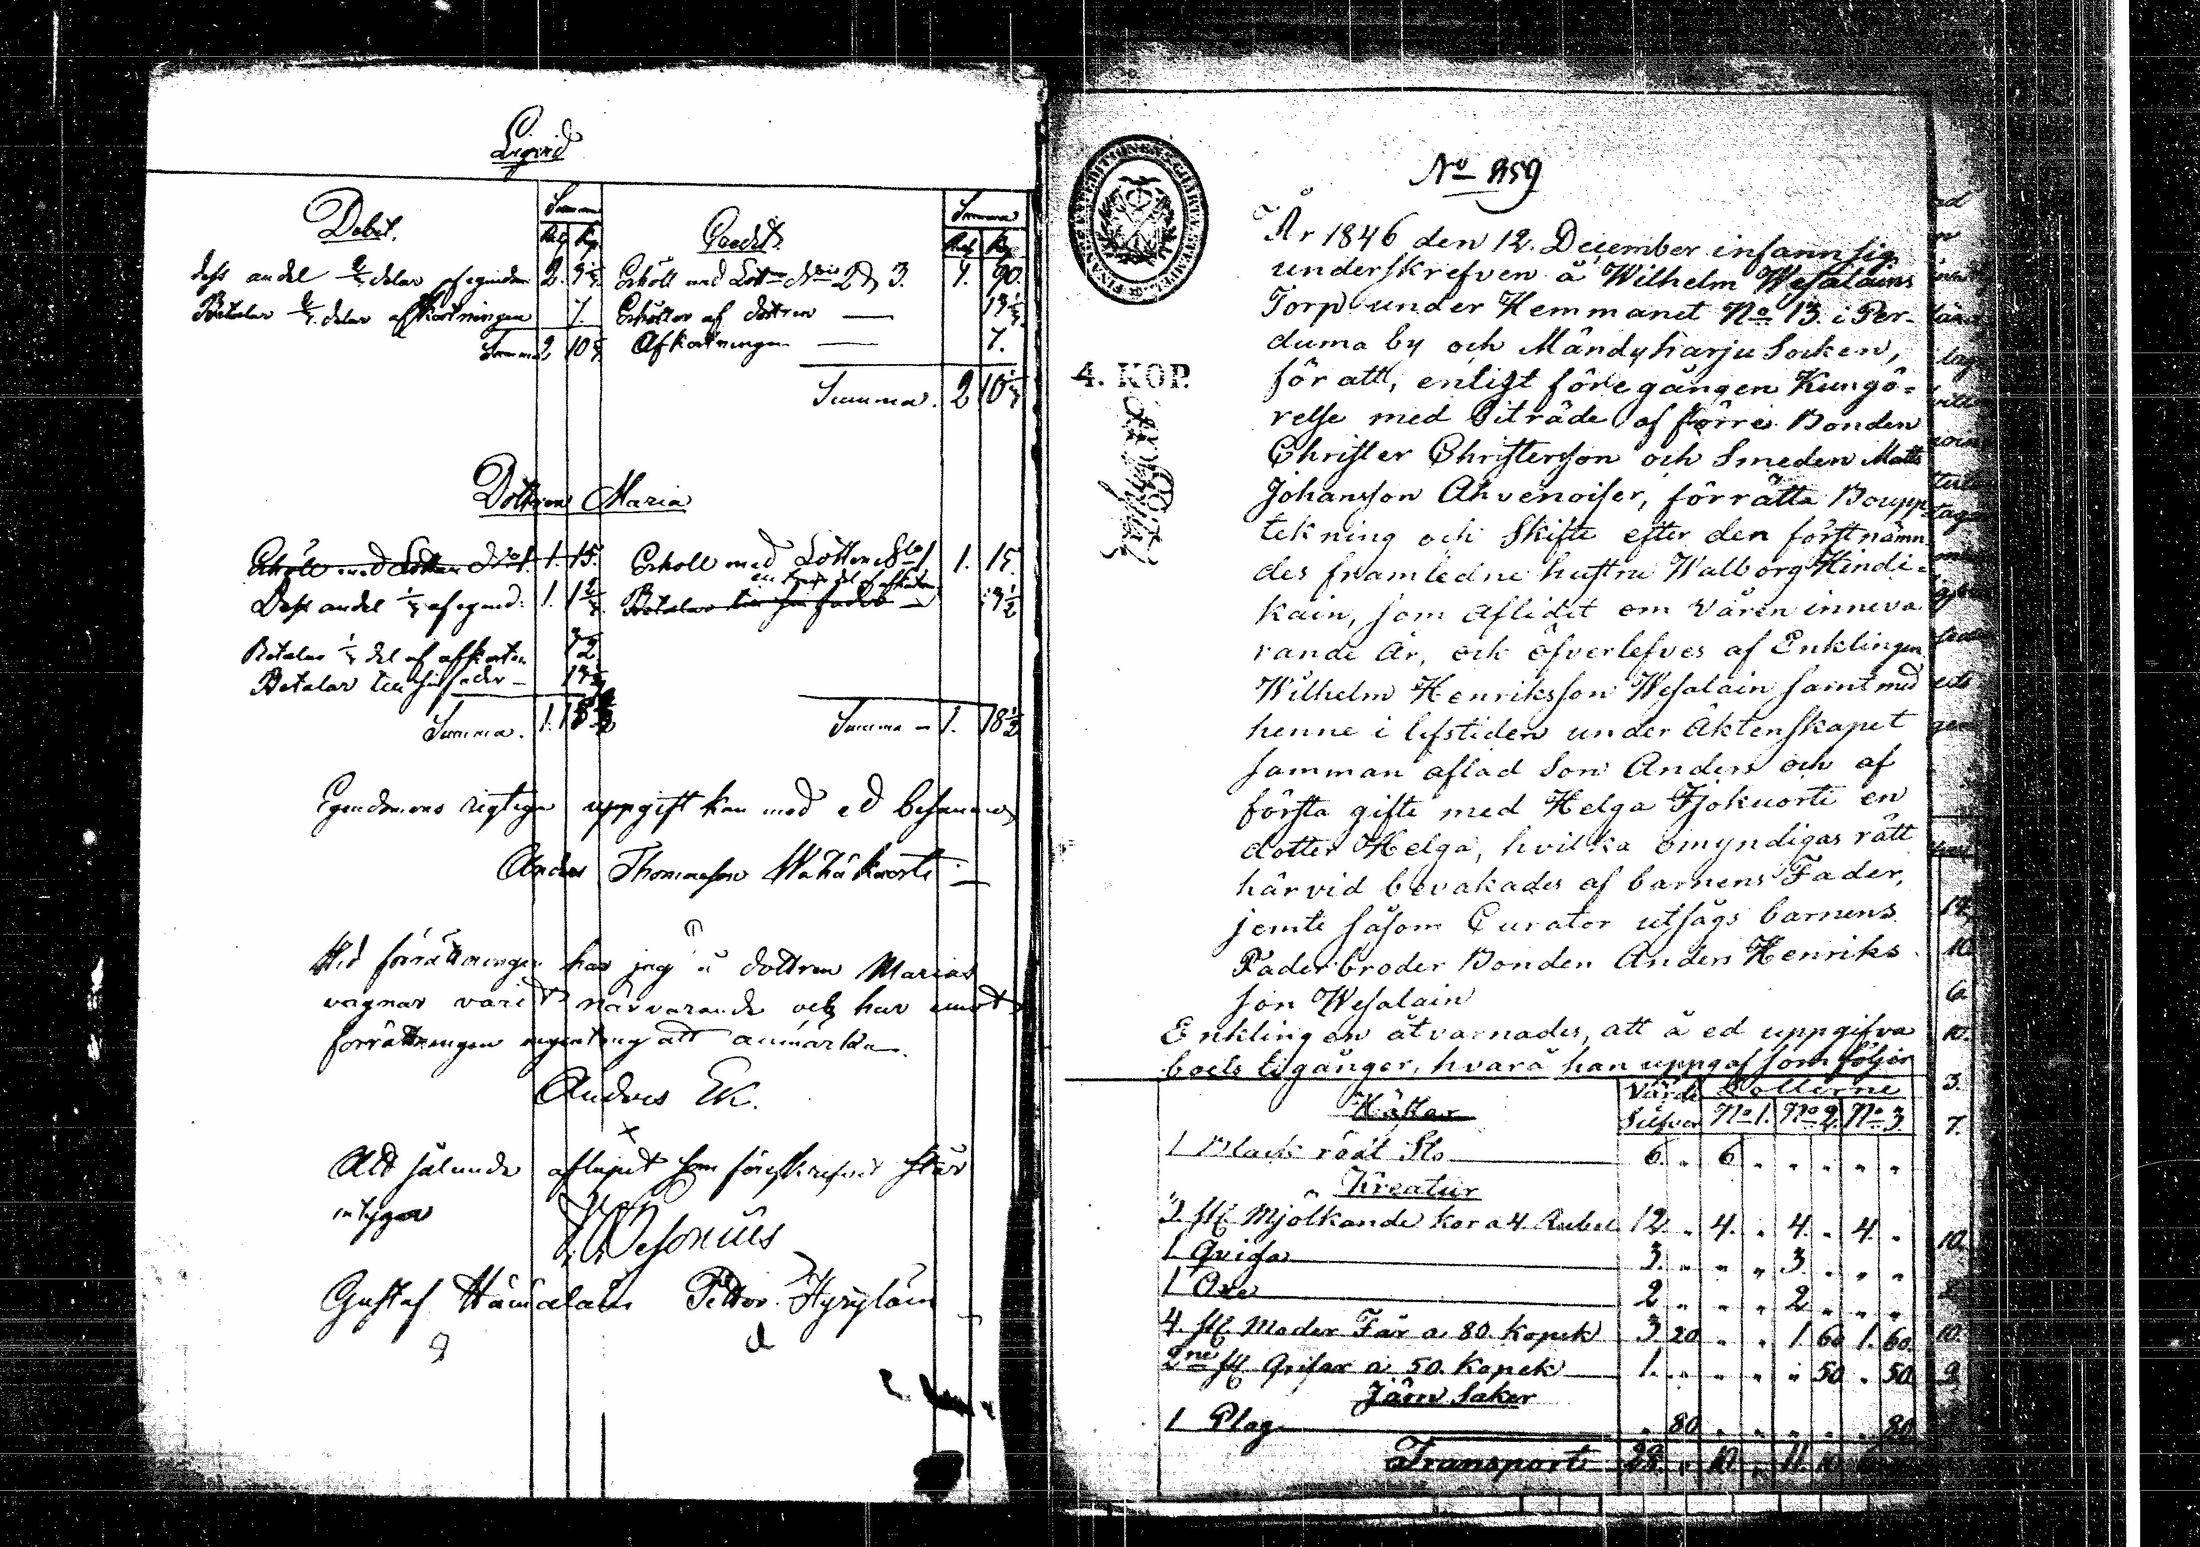 Liqvid
Debet. Summa Credit. Summa
Rub Kop Rub Kop
dess andel 2/3 delar af egendom 2. 3 1/3 Erhöll med Lotterne No 2 & 3. 1. 90.
Betalar 2/3 delar afkortningen 7 Erhåller af dottren 13 1/3
Summa 2 10 Afkortningen 7.
Summa. 2 10
Dottren Maria
Erhöll med Lotten No 1. 1. 15. Erhöll med Lotten No 1 1. 15.
Dess andel 1/3 af egend: 1. 1 2/3 Betalar till sin fader 3 1/2
Betalar 1/3 del af afkortn 3 1/2
Betalar till sin fader 13 1/3
Summa. 1. 18 1/2 Summa 1. 18 1/2
Egendomens rigtiga uppgift kan med ed besannas
Anders Thomasson Wähäkuorti
Vid förrättningen har jag å dottren Marias
vägnar varit närvarande och har emot
förrättningen ingenting att anmärka.
Anders Ek.
Att sålunda aflupit som föreskrefvit står
intygar
Wesonius
Gustaf Hämäläin Petter Hyryläin
No 959
År 1846 den 12. December infann sig
underskrefven å Wilhelm Wesalains
Torp under Hemmanet No 13. i Per-
duma by och Mändyharju Socken,
4. KOP.
för att, enligt föregången Kungö-
relse med Biträde af förre Bonden
Christer Christersson och Smeden Matts
Johansson Ahvenoiser, förrätta Boupp-
tekning och Skifte efter den förstnämn
des framledne hustru Walborg Hindi-
kain, som aflidit om våren inneva
rande År, och öfverlefves af Enklingen
Wilhelm Henriksson Wesalain samt med
henne i lifstiden under Äktenskapet
samman aflad Son Anders och af
första gifte med Helga Tjokuorti en
dotter Helga, hvilka omyndigas rätt
härvid bevakades af barnens Fader,
jemte såsom Curator utsågs barnens
Faderbroder Bonden Anders Henriks
son Wesalain
Enklingen åtvarnades, att å ed uppgifva
boets tilgånger, hvarå han uppgaf som följer
Värde Lotterne
Hästar Silfver No 1. No 2. No 3.
1 Black rödt Sto 6. " 6 " " " " "
Kreatur
3 st. Mjölkande kor a 4 Rubel 12 " 4. " 4. " 4. "
1 Qviga 3. " " " 3 " " "
1 Oxe 2 " " " 2 " " "
4. st. Moder Får a 80. kopek 3. 20 " " 1. 60 1. 60.
2ne st. Grisar a 50. Kopek 1. " " " " 50 " 50
Järn Saker
1 Plog " 80 " " " " " 80
Transport 28. " 10 " 11. 10